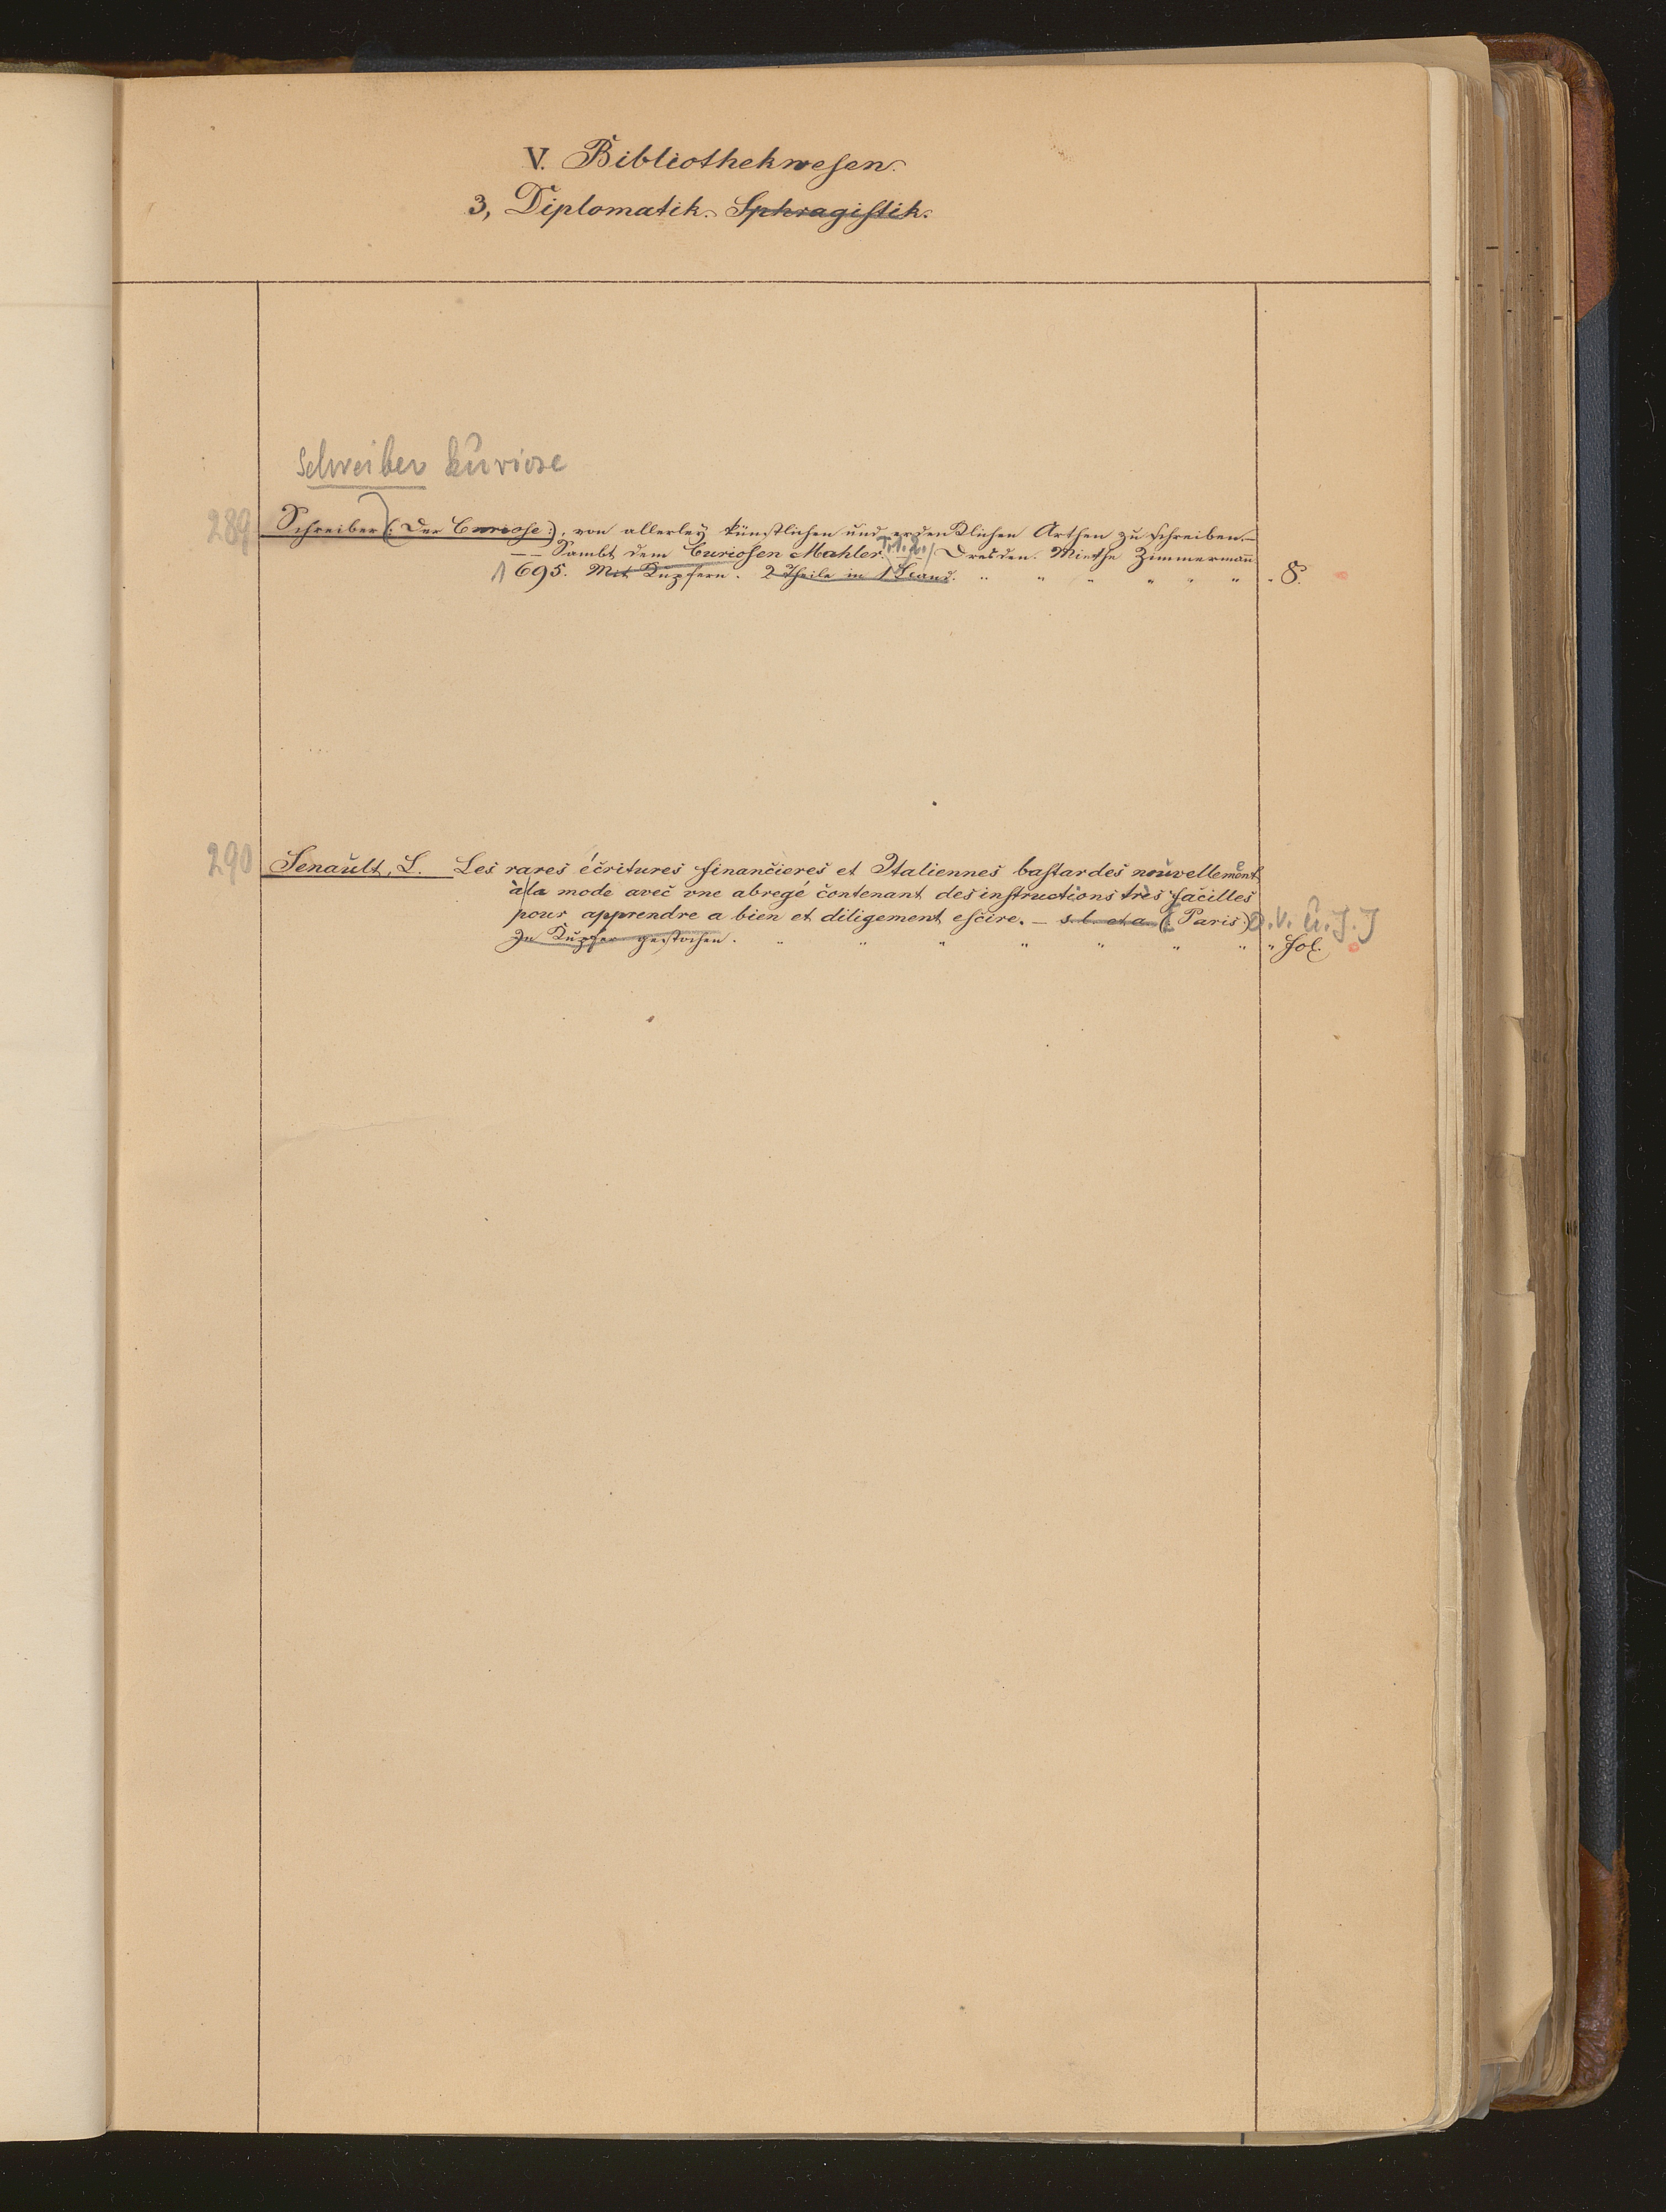 V. Bibliothekwesen.
3, Diplomatik. Sphragistik.
Schreiber kuriose
289 Schreiber (: Der Curiose :), von allerley künstlichen und ordentlichen Arthen zu schreiben. —
— — Sambt dem Curiosen Mahler. T. 1. 2. Dresden. Miethe Zimmermann
1695. Mit Kupfern. 2 Theile in 1 Band. " " " " " " " 8.
290 Senault, L. Les rares écritures financieres et Italiennes bastardes nouvellement
à la mode avec vne abregé contenant des instructions très facilles
pour apprendre a bien et diligement escire. — s. l. et a. (: Paris :) O. V. u. J. J
In Kupfer gestochen. " " " " " " " " Fol.